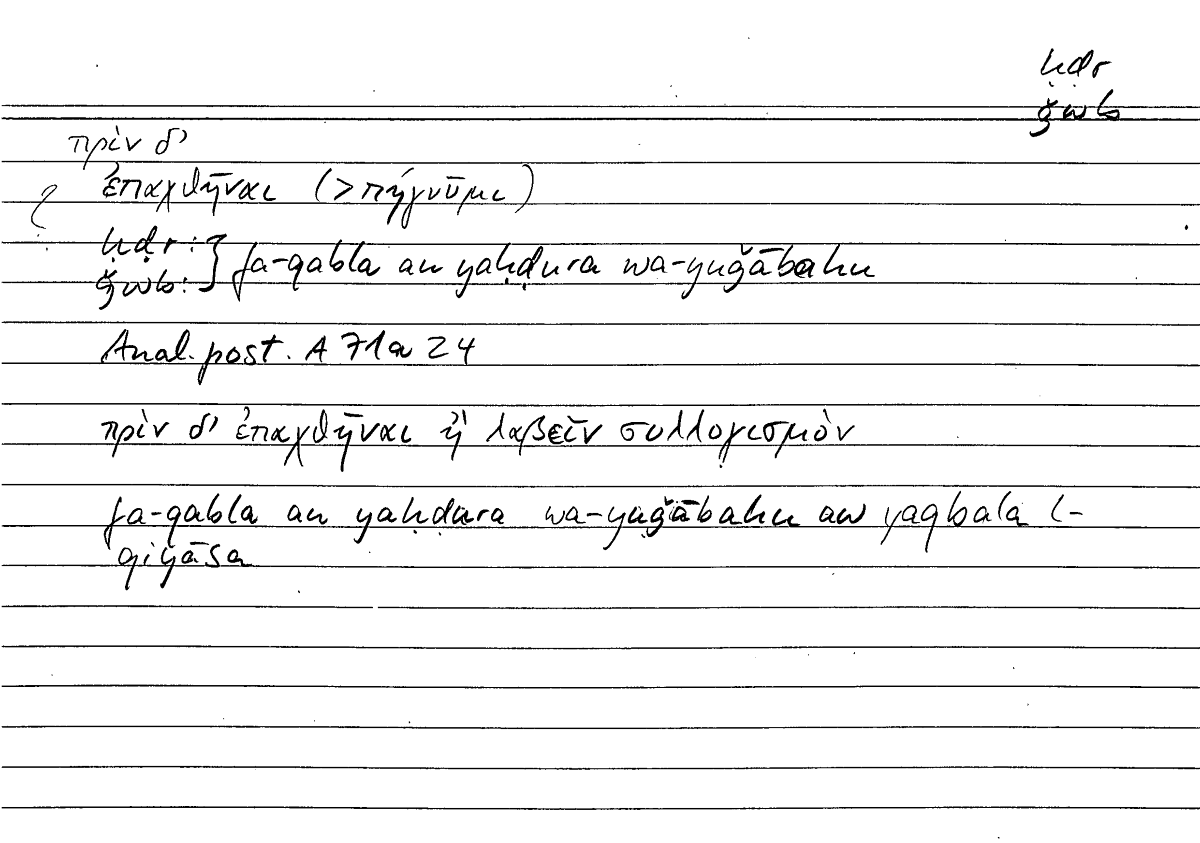 ḥḍr
ǧwb
πρὶν δ'
ἐπαχθῆναι (> πήγνῡμι)
?
ḥḍr:
ǧwb: } fa-qabla an yaḥḍura wa-yuǧābahu
Anal. post. A 71a 24
πρὶν δ' ἐπαχθῆναι ἢ λαβεῖν συλλογισμὸν
fa-qabla an yaḥḍura wa-yuǧābahu aw yaqbala l-
qiyāsa